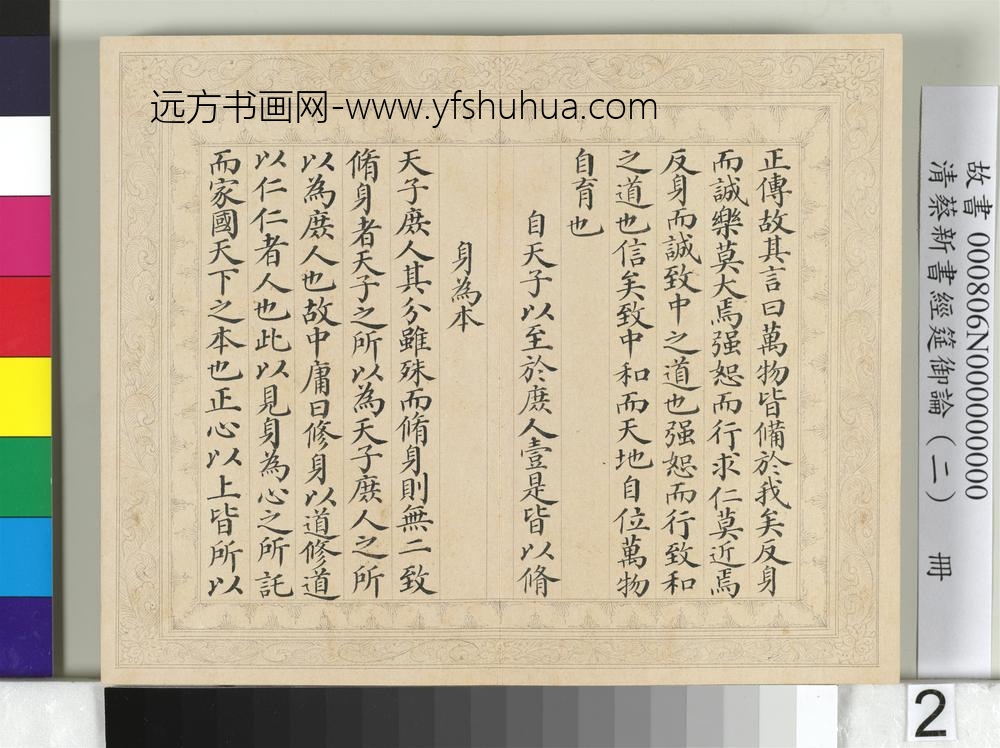 远方书画网-www.yfshuhua.com
正傳故其言曰萬物皆備於我矣反身
而誠樂莫大焉强恕而行求仁莫近焉
反身而誠致中之道也强恕而行致和
之道也信矣致中和而天地自位萬物
自育也
自天子以至於庶人壹是皆以脩
身為本
天子庶人其分雖殊而脩身則無二致
脩身者天子之所以為天子庶人之所
以為庶人也故中庸曰修身以道修道
以仁仁者人也此以見身為心之所託
而家國天下之本也正心以上皆所以
故書 000806N000000000
清蔡新書經筵御論(二) 冊
2